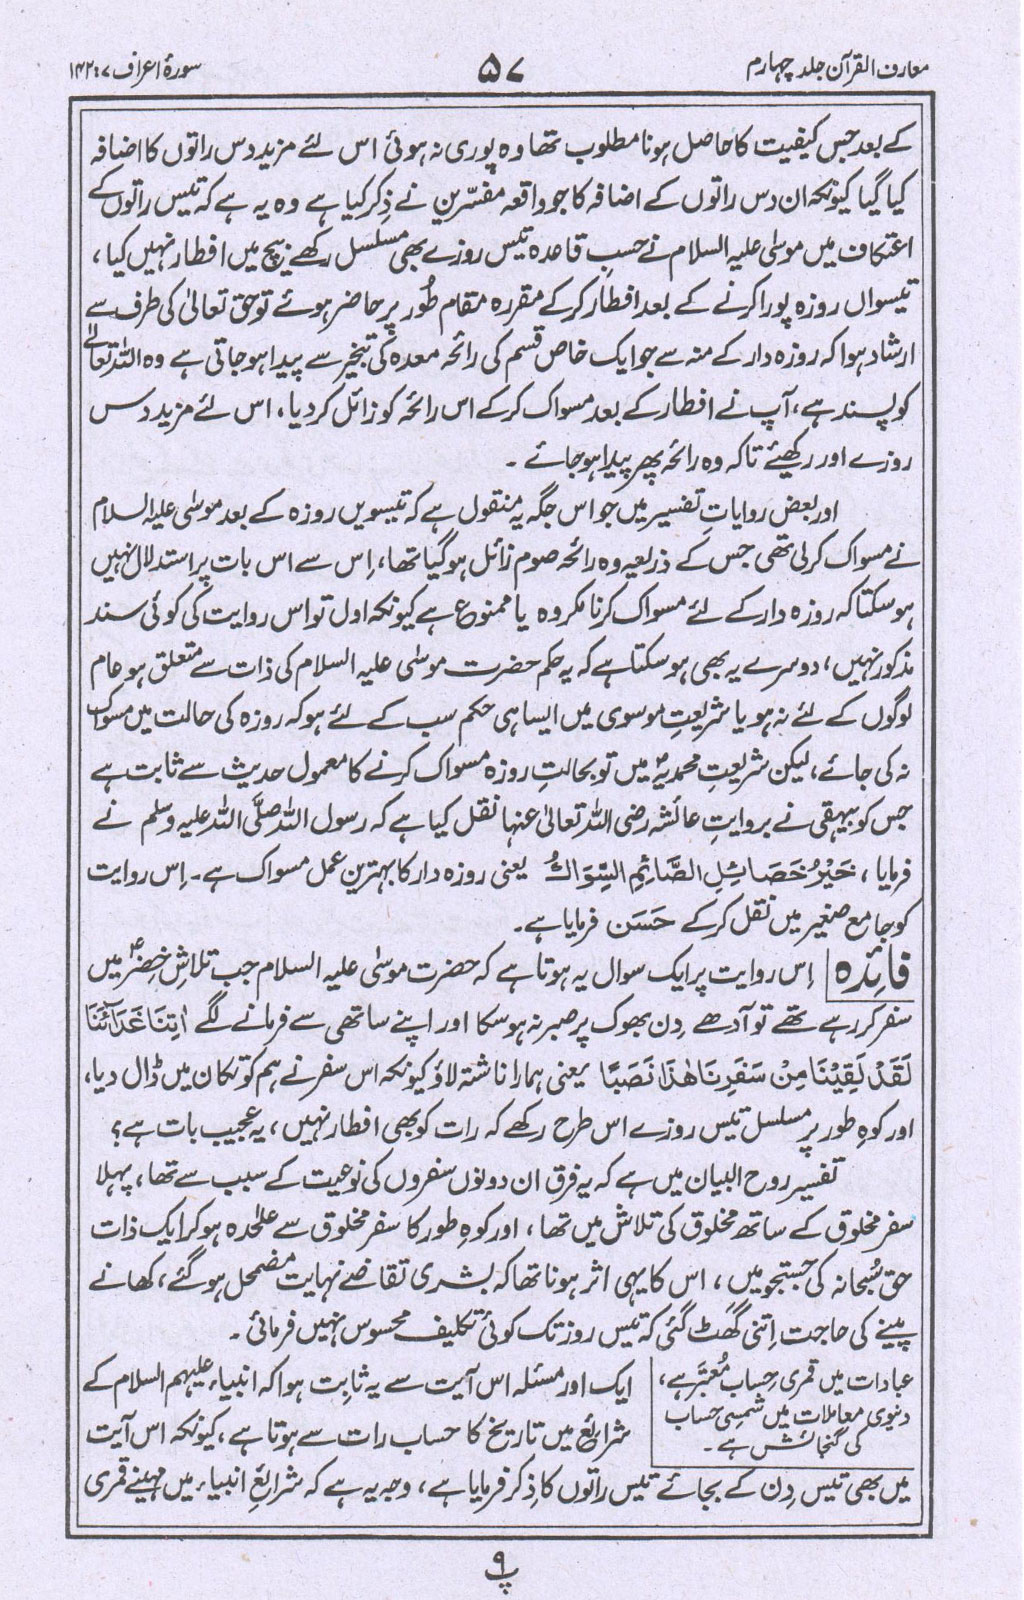 معارف القرآن جلد چہارم
۵۷
سورۂ اعراف ۷ : ۱۴۲
کے بعد جس کیفیت کا حاصل ہونا مطلوب تھا وہ پوری نہ ہوئی اس لئے مزید دس راتوں کا اضافہ
کیا گیا کیونکہ ان دس راتوں کے اضافہ کا جو واقعہ مفسّرین نے ذکر کیا ہے وہ یہ ہے کہ تیس راتوں کے
اعتکاف میں موسیٰ علیہ السلام نے حسب قاعدہ تیس روزے بھی مسلسل رکھے بیچ میں افطار نہیں کیا،
تیسواں روزہ پورا کرنے کے بعد افطار کرکے مقررہ مقام طُور پر حاضر ہوئے تو حق تعالیٰ کی طرف سے
ارشاد ہوا کہ روزہ دار کے منہ سے جو ایک خاص قسم کی رائحہ معدہ کی تبخیر سے پیدا ہو جاتی ہے وہ اللہ تعالیٰ
کو پسند ہے، آپ نے افطار کے بعد مسواک کرکے اس رائحہ کو زائل کردیا، اس لئے مزید دس
روزے اور رکھیئے تاکہ وہ رائحہ پھر پیدا ہو جائے ۔
اور بعض روایاتِ تفسیر میں جو اس جگہ یہ منقول ہے کہ تیسویں روزہ کے بعد موسیٰ علیہ السلام
نے مسواک کرلی تھی جس کے ذریعہ وہ رائحہ صوم زائل ہوگیا تھا، اِس سے اس بات پر استدلال نہیں
ہوسکتا کہ روزہ دار کے لئے مسواک کرنا مکروہ یا ممنوع ہے کیونکہ اول تو اس روایت کی کوئی سند
مذکور نہیں، دوسرے یہ بھی ہوسکتا ہے کہ یہ حکم حضرت موسیٰ علیہ السلام کی ذات سے متعلق ہو عام
لوگوں کے لئے نہ ہو یا شریعتِ موسوی میں ایسا ہی حکم سب کے لئے ہو کہ روزہ کی حالت میں مسواک
نہ کی جائے، لیکن شریعتِ محمدیہؐ میں تو بحالتِ روزہ مسواک کرنے کا معمول حدیث سے ثابت ہے
جس کو بیہقی نے بروایتِ عائشہ رضی اللہ تعالیٰ عنہا نقل کیا ہے کہ رسول اللہ صلَّی اللہ علیہ وسلم نے
فرمایا، خَيْرُ خَصَائِلِ الصَّائِمِ السِّوَاكُ یعنی روزہ دار کا بہترین عمل مسواک ہے۔ اِس روایت
کو جامع صغیر میں نقل کرکے حَسَن فرمایا ہے۔
فائدہ اِس روایت پر ایک سوال یہ ہوتا ہے کہ حضرت موسیٰ علیہ السلام جب تلاشِ خضرؑ میں
سفر کر رہے تھے تو آدھے دِن بھوک پر صبر نہ ہوسکا اور اپنے ساتھی سے فرمانے لگے اٰتِنَا غَدَآئَنَا
لَقَدْ لَقِيْنَا مِنْ سَفَرِنَا هٰذَا نَصَبًا یعنی ہمارا ناشتہ لاؤ کیونکہ اس سفر نے ہم کو تکان میں ڈال دیا،
اور کوہِ طور پر مسلسل تیس روزے اس طرح رکھے کہ رات کو بھی افطار نہیں، یہ عجیب بات ہے؟
تفسیر روح البیان میں ہے کہ یہ فرق ان دونوں سفروں کی نوعیت کے سبب سے تھا، پہلا
سفر مخلوق کے ساتھ مخلوق کی تلاش میں تھا، اور کوہِ طور کا سفر مخلوق سے علٰحدہ ہوکر ایک ذات
حق سُبحانہ کی جستجو میں، اس کا یہی اثر ہونا تھا کہ بشری تقاضے نہایت مضمحل ہو گئے، کھانے
پینے کی حاجت اِتنی گَھٹ گئی کہ تیس روز تک کوئی تکلیف محسوس نہیں فرمائی ۔
عبادات میں قمری حِساب مُعتبَر ہے،
دنیوی معاملات میں شمسی حساب
کی گنجائش ہے ۔
ایک اور مسئلہ اس آیت سے یہ ثابت ہوا کہ انبیاء علیہم السلام کے
شرائع میں تاریخ کا حساب رات سے ہوتا ہے، کیونکہ اس آیت
میں بھی تیس دِن کے بجائے تیس راتوں کا ذِکر فرمایا ہے، وجہ یہ ہے کہ شرائعِ انبیاء میں مہینے قمری
پ ۹